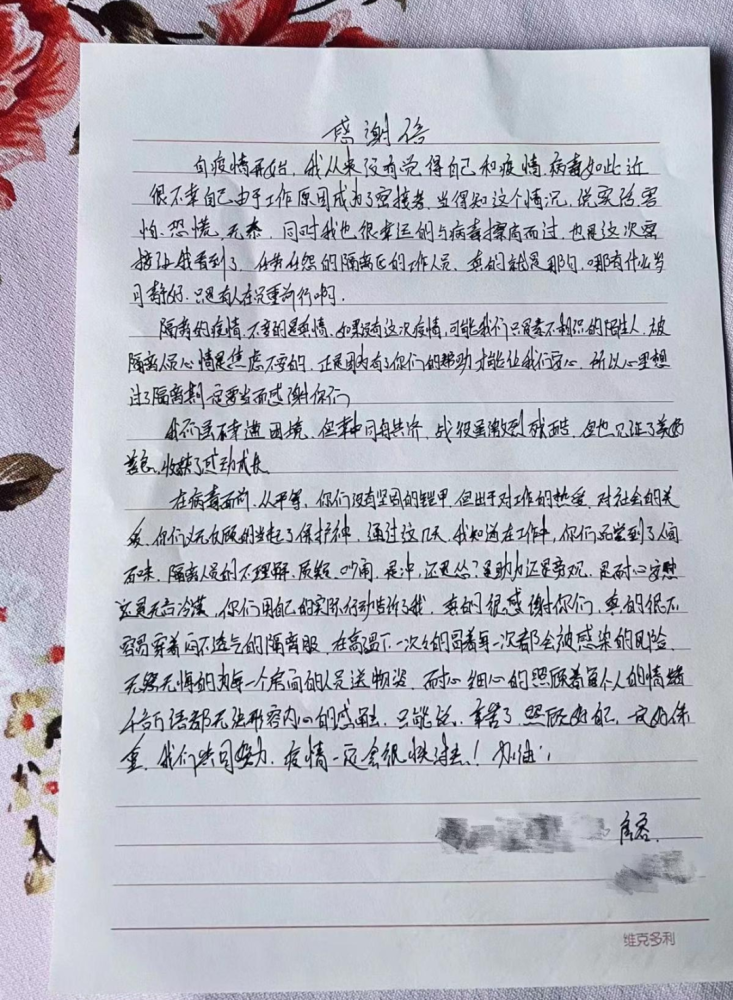 感谢信
自疫情开始，我从来没有觉得自己和疫情、病毒如此近
很不幸自己由于工作原因成为了密接者，当得知这个情况，说实话害
怕、恐慌、无奈，同时我也很幸运的与病毒擦肩而过，也是这次密
接让我看到了，任劳任怨的隔离区的工作人员，真的就是那句，哪有什么岁
月静好，只是有人在负重前行啊。
隔离的疫情，不变的是真情，如果没有这次疫情，可能我们只是素不相识的陌生人，被
隔离人员心情是焦虑不安的，正是因为有了你们的帮助才能让我们安心，所以心里想
过了隔离期一定要当面感谢你们
我们虽不幸遭困境，但幸中同舟共济，战役虽激烈残酷，但也见证了美好
善意，收获了感动成长
在病毒面前，人人平等，你们没有坚固的铠甲，但出于对工作的热爱，对社会的关
爱，你们义无反顾的当起了保护神，通过这几天，我知道在工作中，你们品尝到了人间
百味，隔离人员的不理解、质疑、吵闹，是冲，还是怂？是助力还是旁观，是耐心安慰
还是无言冷漠，你们用自己的实际行动告诉了我，真的很感谢你们，真的很不
容易穿着闷不透气的隔离服，在高温下一次次的冒着每一次都会被感染的风险，
无怨无悔的为每一个房间的人员送物资，耐心细心的照顾着每个人的情绪
千言万语都无法形容内心的感触，只能说，辛苦了，照顾好自己，一定好保
重，我们共同努力，疫情一定会很快过去！加油！
房客
维克多利